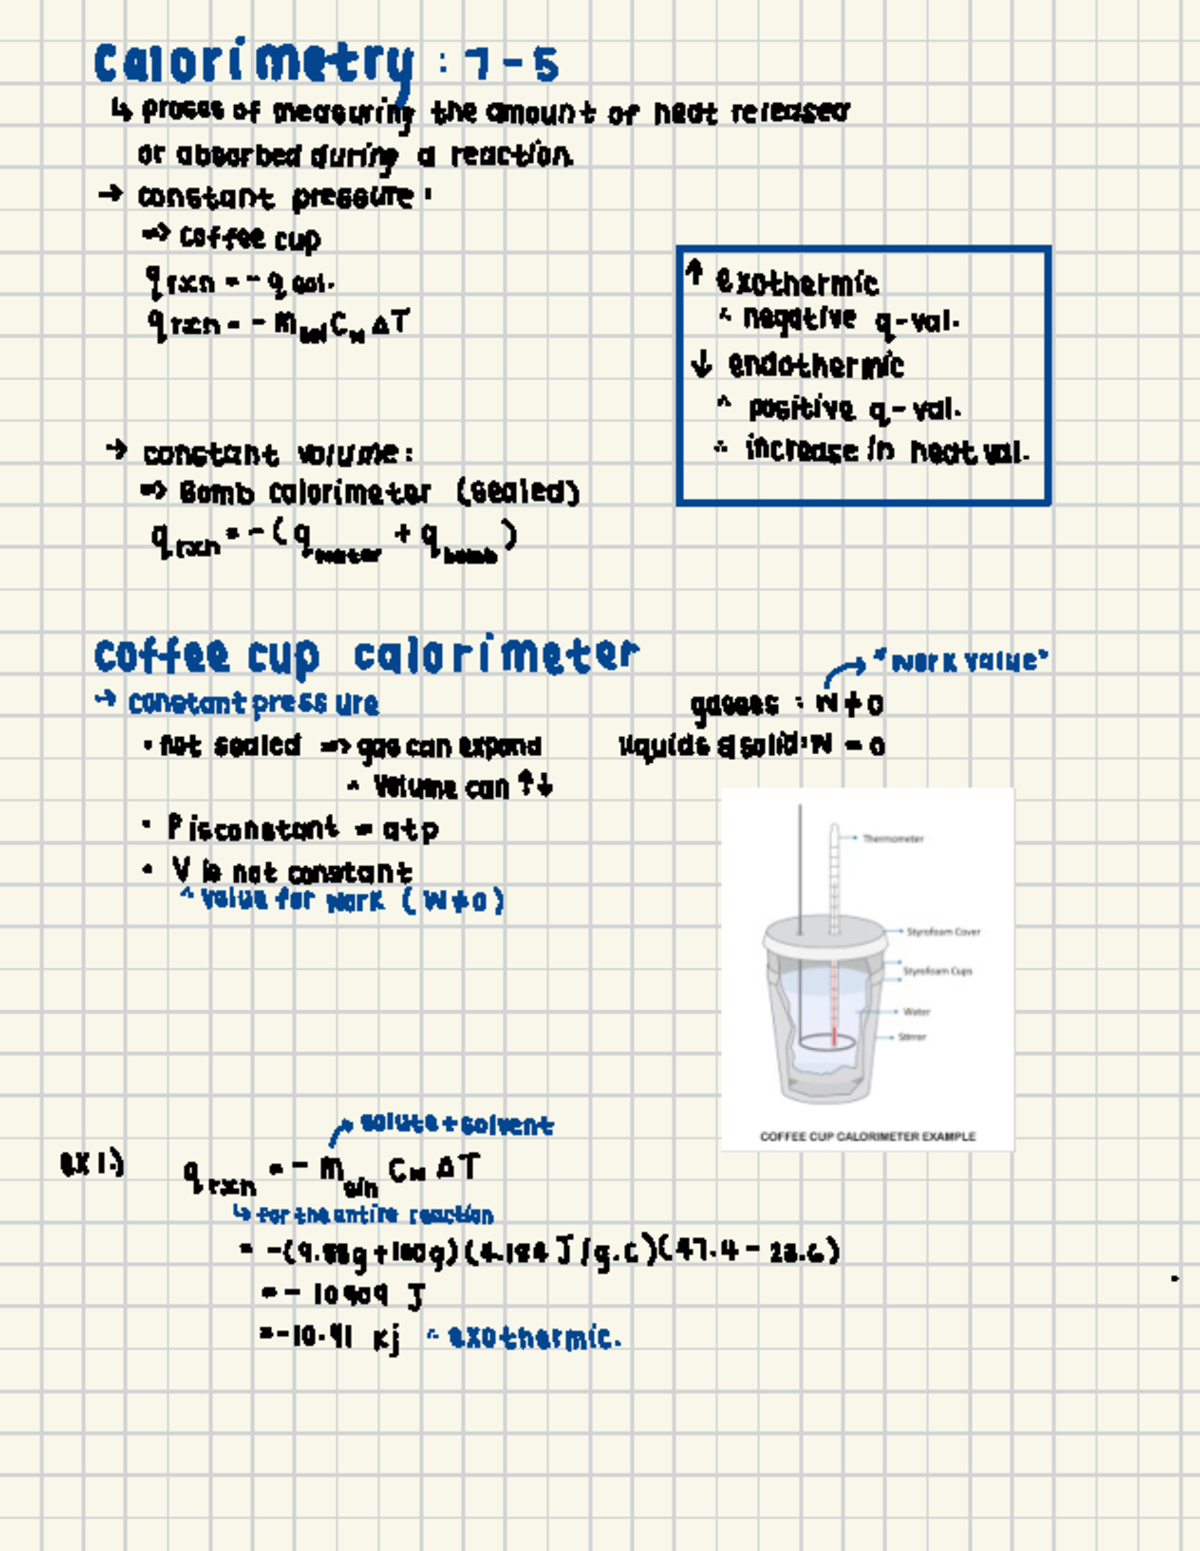 Calorimetry : 7-5
↳ proces of measuring the amount of heat released
or absorbed during a reaction
→ constant pressure:
=> coffee cup
q rxn = - q sol.
q rxn = - m sol Cw ΔT
↑ exothermic
∴ negative q-val.
↓ endothermic
^ positive q-val.
∴ increase in heat val.
→ constant volume:
=> Bomb calorimeter (sealed)
q rxn = - (q water + q bomb)
coffee cup calorimeter
→ constant pressure
• not sealed => gas can expand
^ Volume can ↑↓
• P is constant = atp
• V is not constant
^ value for work (W≠0)
"work value"
gasses : W≠0
liquids & solid: W = 0
Thermometer
Styrofoam Cover
Styrofoam Cups
Water
Stirrer
COFFEE CUP CALORIMETER EXAMPLE
solute + solvent
ex 1.) q rxn = - m sln Cw ΔT
↳ for the entire reaction
= -( g + g)(4.184 J/g.c)(47.4 - )
= - 10909 J
= -10.91 kj ∴ exothermic.